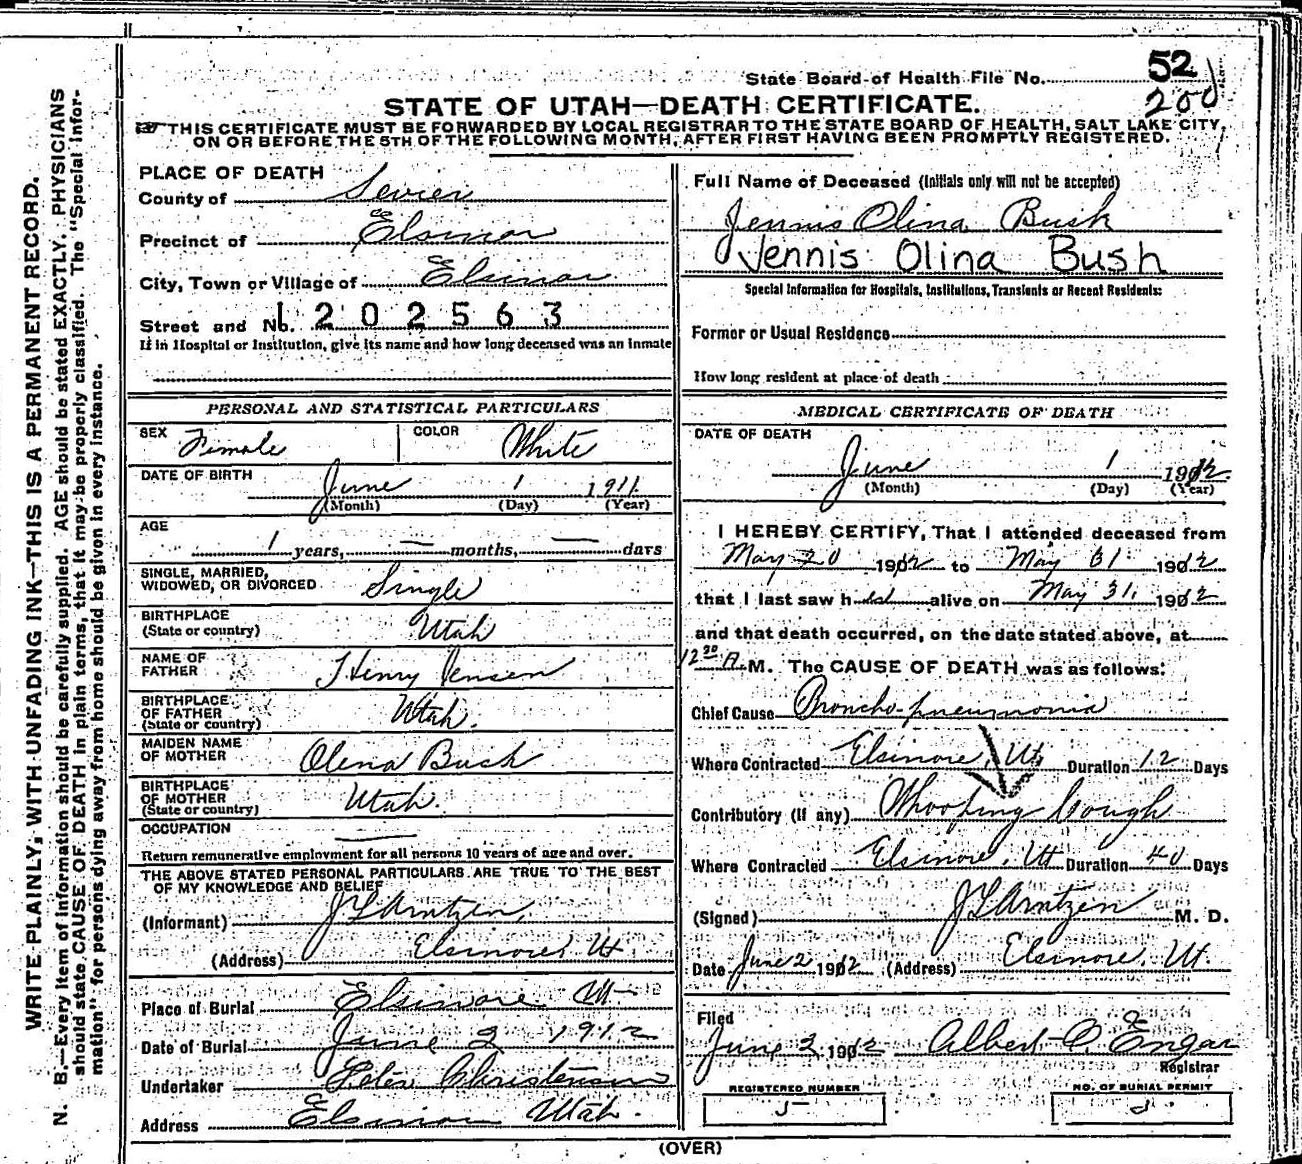 State Board of Health File No. 52
200
STATE OF UTAH—DEATH CERTIFICATE.
THIS CERTIFICATE MUST BE FORWARDED BY LOCAL REGISTRAR TO THE STATE BOARD OF HEALTH, SALT LAKE CITY,
ON OR BEFORE THE 5TH OF THE FOLLOWING MONTH, AFTER FIRST HAVING BEEN PROMPTLY REGISTERED.
WRITE PLAINLY, WITH UNFADING INK—THIS IS A PERMANENT RECORD.
N. B.—Every item of information should be carefully supplied. AGE should be stated EXACTLY. PHYSICIANS
should state CAUSE OF DEATH in plain terms, that it may be properly classified. The "Special Infor-
mation" for persons dying away from home should be given in every instance.
PLACE OF DEATH
County of Sevier
Precinct of Elsinor
City, Town or Village of Elsinor
Street and No. 1202563
If in Hospital or Institution, give its name and how long deceased was an inmate
Full Name of Deceased (Initials only will not be accepted)
Jennis Olina Bush
Jennis Olina Bush
Special Information for Hospitals, Institutions, Transients or Recent Residents:
Former or Usual Residence
How long resident at place of death
PERSONAL AND STATISTICAL PARTICULARS
SEX Female COLOR White
DATE OF BIRTH June 1 1911
(Month) (Day) (Year)
AGE
1 years, — months, — days
SINGLE, MARRIED,
WIDOWED, OR DIVORCED Single
BIRTHPLACE
(State or country) Utah
NAME OF
FATHER Henry Jensen
BIRTHPLACE
OF FATHER
(State or country) Utah.
MAIDEN NAME
OF MOTHER Olena Bush
BIRTHPLACE
OF MOTHER
(State or country) Utah.
OCCUPATION —
Return remunerative employment for all persons 10 years of age and over.
THE ABOVE STATED PERSONAL PARTICULARS ARE TRUE TO THE BEST
OF MY KNOWLEDGE AND BELIEF
(Informant) J L Arntzen,
(Address) Elsinore, Ut
Place of Burial Elsinore Ut
Date of Burial June 2 1912
Undertaker Peter Christensen
Address Elsinor Utah.
MEDICAL CERTIFICATE OF DEATH
DATE OF DEATH
June 1 1912
(Month) (Day) (Year)
I HEREBY CERTIFY, That I attended deceased from
May 20 1912 to May 31 1912
that I last saw h alive on May 31, 1912
and that death occurred, on the date stated above, at
12 20 A. M. The CAUSE OF DEATH was as follows:
Chief Cause Broncho-pneumonia
Where Contracted Elsinore, Ut, Duration 12 Days
Contributory (If any) Whooping Cough
Where Contracted Elsinore, Ut Duration 40 Days
(Signed) J L Arntzen M. D.
Date June 2 1912 (Address) Elsinore, Ut.
Filed
June 2 1912 Albert Engar
Registrar
REGISTERED NUMBER
5
NO. OF BURIAL PERMIT
(OVER)